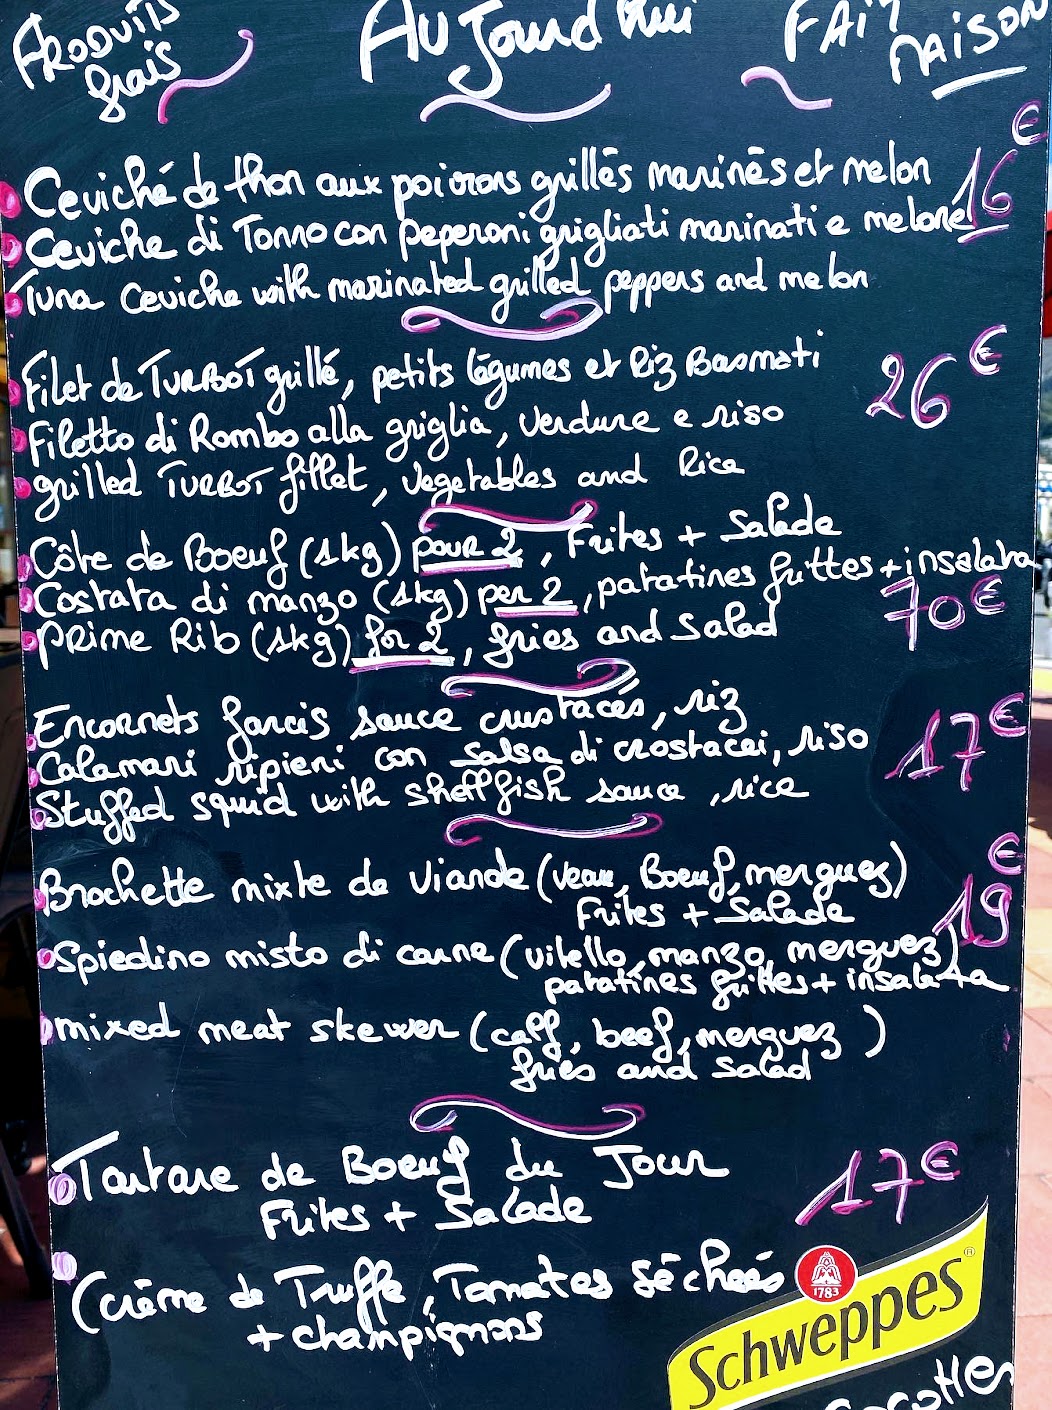 PRODUITS frais
AUJourd'hui
FAIT MAISON
Ceviché de thon aux poivrons grillés marinés et melon 16€
Ceviche di Tonno con peperoni grigliati marinati e melone
Tuna Ceviche with marinated grilled peppers and melon
Filet de TURBOT grillé, petits légumes et Riz Basmati 26€
Filetto di Rombo alla griglia, verdure e riso
grilled TURBOT fillet, vegetables and Rice
Côte de Boeuf (1kg) pour 2, Frites + Salade
Costata di manzo (1kg) per 2, patatines frittes + insalata
70€
Prime Rib (1kg) for 2, fries and salad
Encornets farcis sauce crustacés, riz
17€
Calamari ripieni con salsa di crostacei, riso
Stuffed squid with shellfish sauce, rice
Brochette mixte de viande (veau, Boeuf, merguez) 19€
Frites + Salade
Spiedino misto di carne (vitello, manzo, merguez)
patatines frittes + insalata
mixed meat skewer (calf, beef, merguez)
fries and salad
Tartare de Boeuf du Jour 17€
Frites + Salade
(crème de Truffe, Tomates séchées
+ champignons
1783
Schweppes®